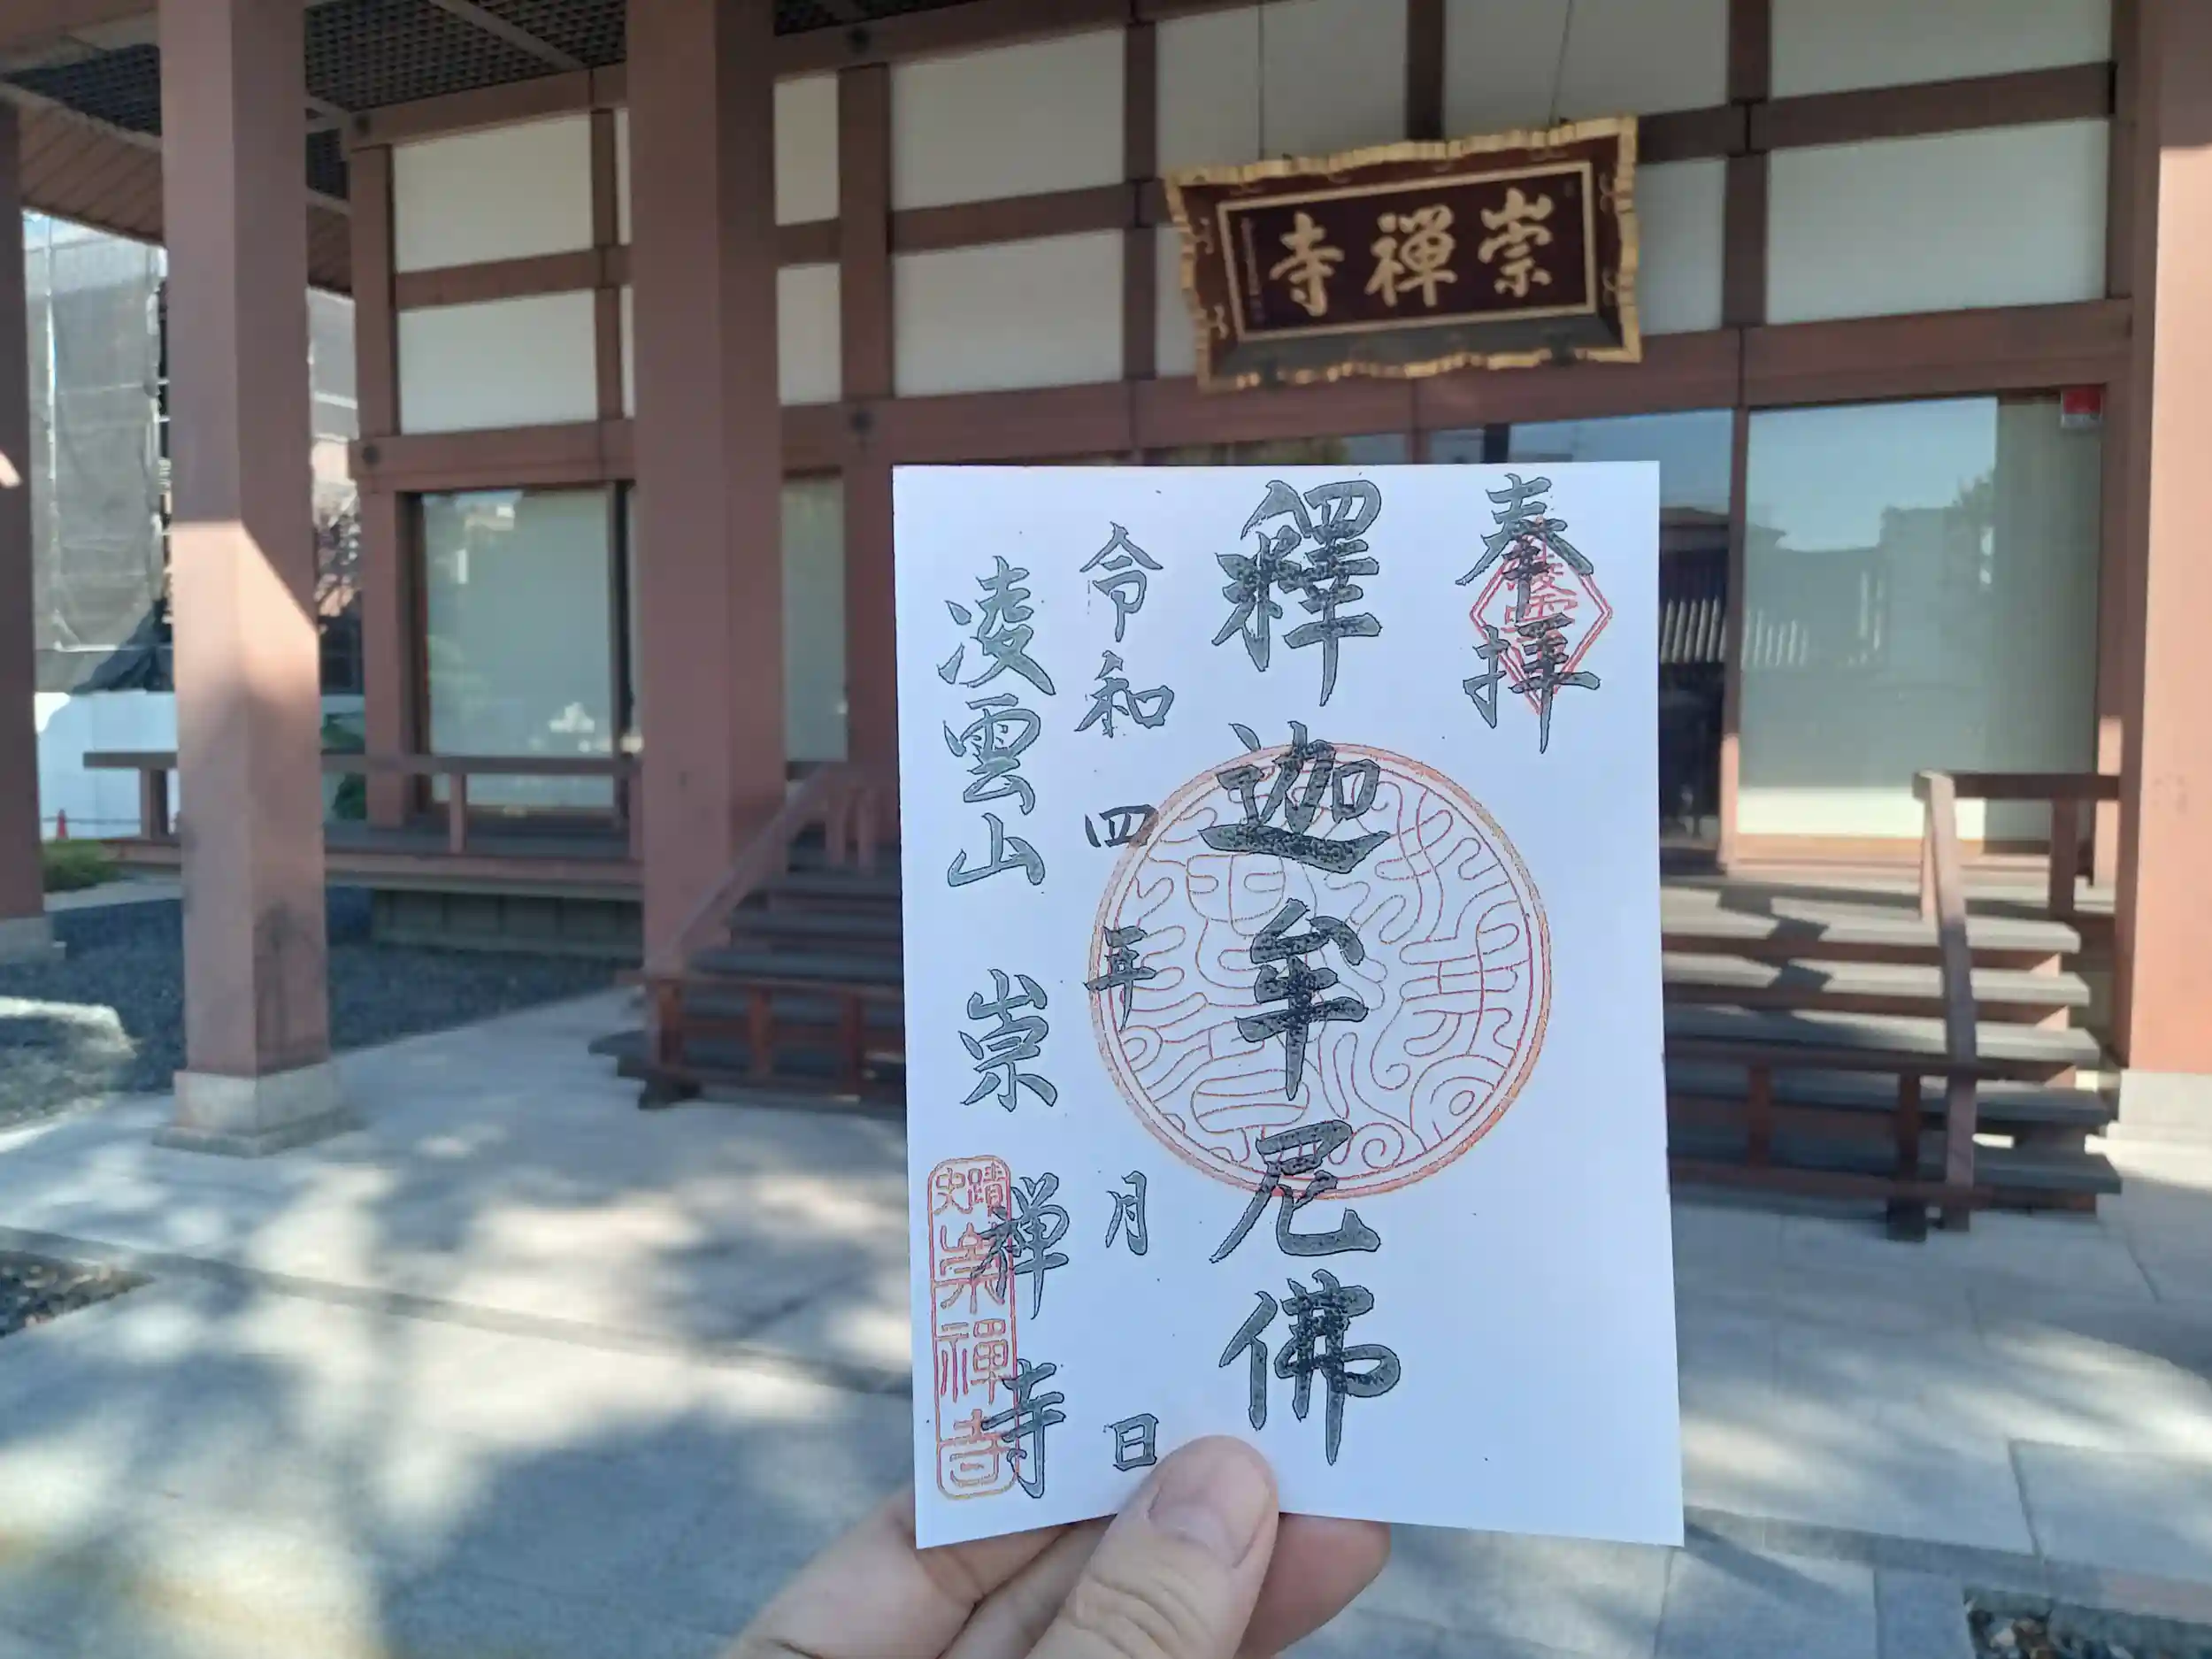 崇禅寺
奉拝
釋迦牟尼佛
令和四年 月 日
凌雲山 崇禅寺
史蹟
崇禪寺